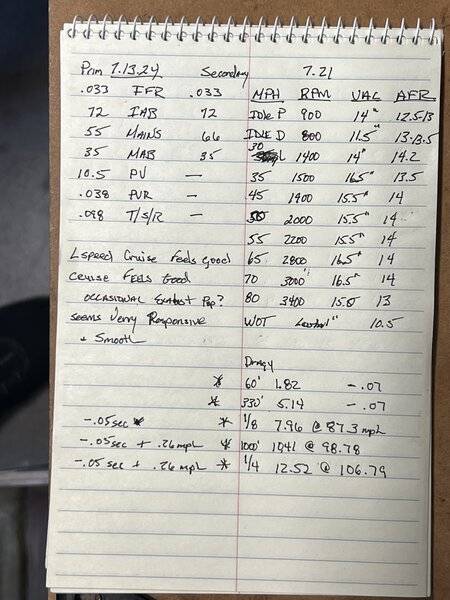 Prim 7.13.24 Secondary 7.21
.033 IFR .033 MPH RPM VAC AFR
72 IAB 72 Idle P 900 14" 12.5-13
55 MAINS 66 IDLE D 800 11.5" 13-13.5
35 MAB 35 30 1400 14" 14.2
10.5 PV — 35 1500 16.5" 13.5
.038 PVR — 45 1900 15.5" 14
.098 T/S/R — 50 2000 15.5" 14
55 2200 15.5" 14
L speed Cruise feels good 65 2800 16.5" 14
Cruise FEELS Good 70 3000 16.5" 14
OCCASIONAL Pop? 80 3400 15.0 13
seems Very Responsive WOT 10.5
+ Smooth
Dragy
* 60' 1.82 -.07
* 330' 5.14 -.07
-.05 sec * 1/8 7.96 @ 87.3 mph
-.05 sec + .26 mph * 1000' 1041 @ 98.78
-.05 sec + .26 mph * 1/4 12.52 @ 106.79